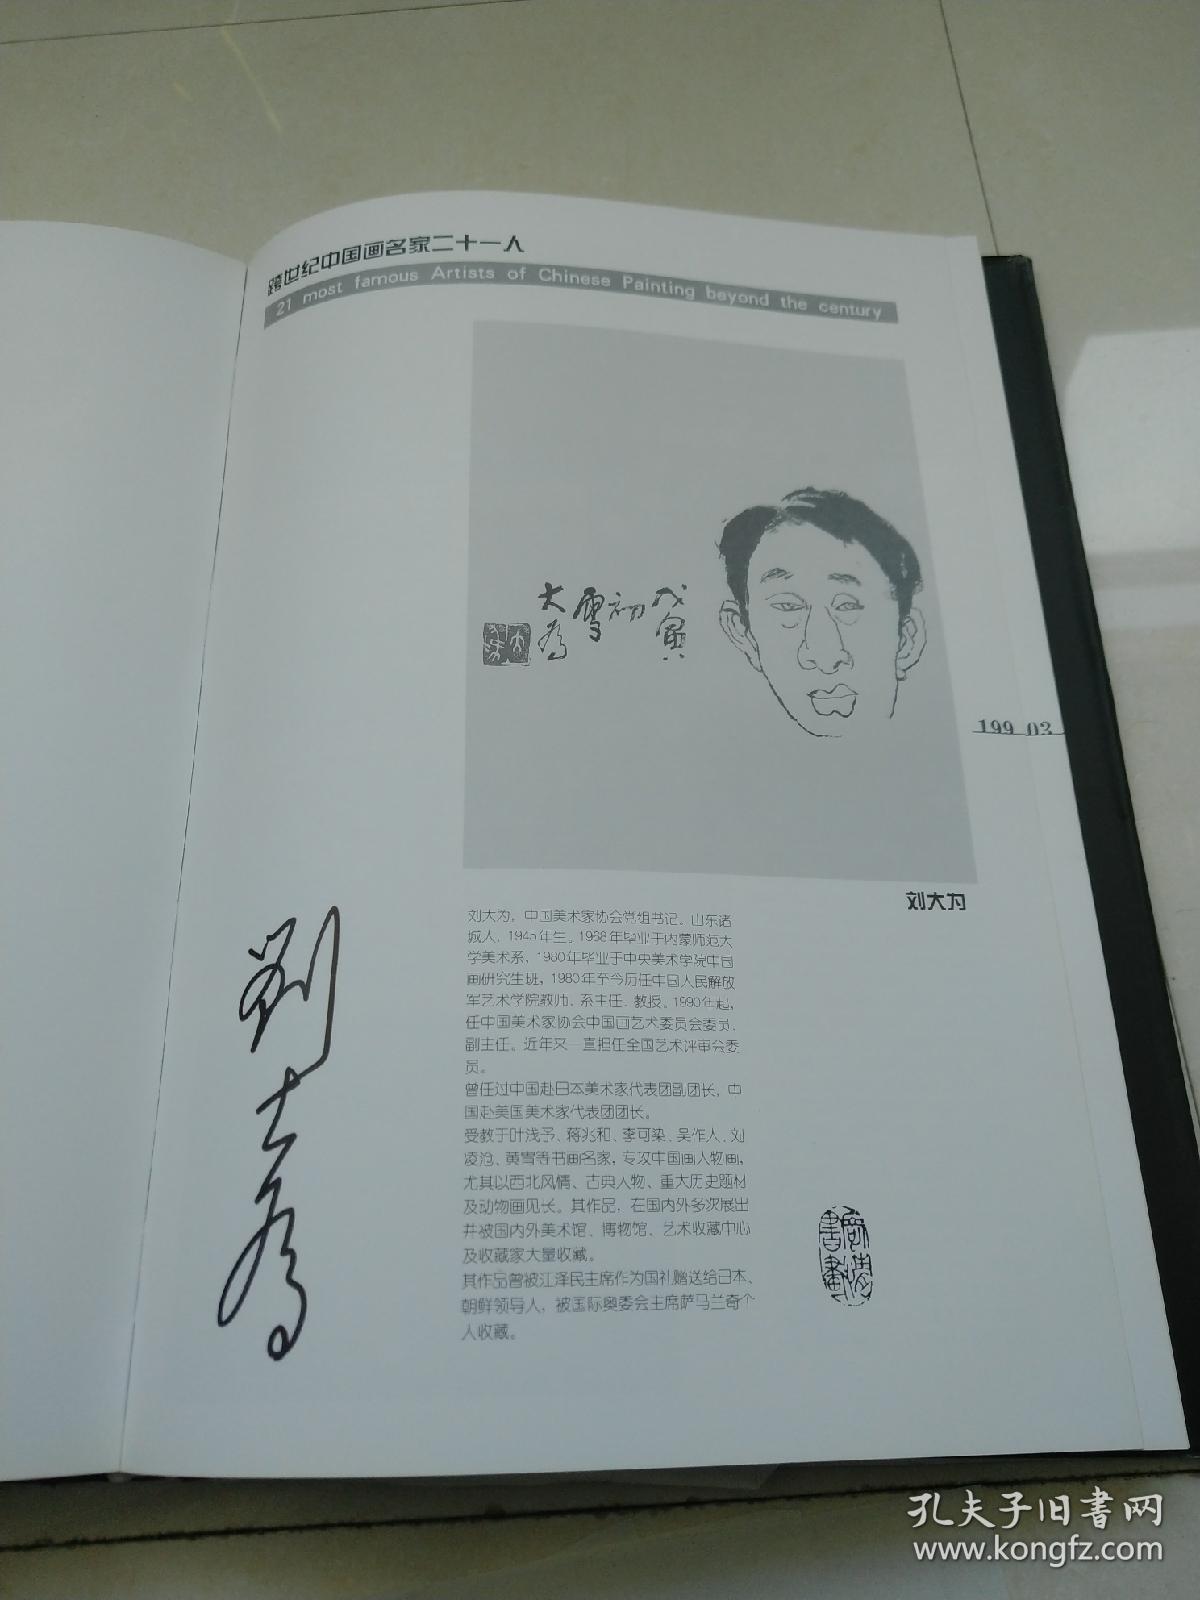 跨世纪中国画名家二十一人
21 most famous Artists of Chinese Painting beyond the century
戊寅
初
雪
大为
199 03
刘大为
刘大为，中国美术家协会党组书记。山东诸
城人，1945年生。1968年毕业于内蒙师范大
学美术系，1980年毕业于中央美术学院中国
画研究生班，1980年至今历任中国人民解放
军艺术学院教师、系主任、教授。1990年起，
任中国美术家协会中国画艺术委员会委员、
副主任。近年又一直担任全国艺术评审会委
员。
曾任过中国赴日本美术家代表团副团长，中
国赴美国美术家代表团团长。
受教于叶浅予、蒋兆和、李可染、吴作人、刘
凌沧、黄胄等书画名家，专攻中国画人物画，
尤其以西北风情、古典人物、重大历史题材
及动物画见长。其作品，在国内外多次展出
并被国内外美术馆、博物馆、艺术收藏中心
及收藏家大量收藏。
其作品曾被江泽民主席作为国礼赠送给日本、
朝鲜领导人，被国际奥委会主席萨马兰奇个
人收藏。
劉大為
孔夫子旧書网
www.kongfz.com